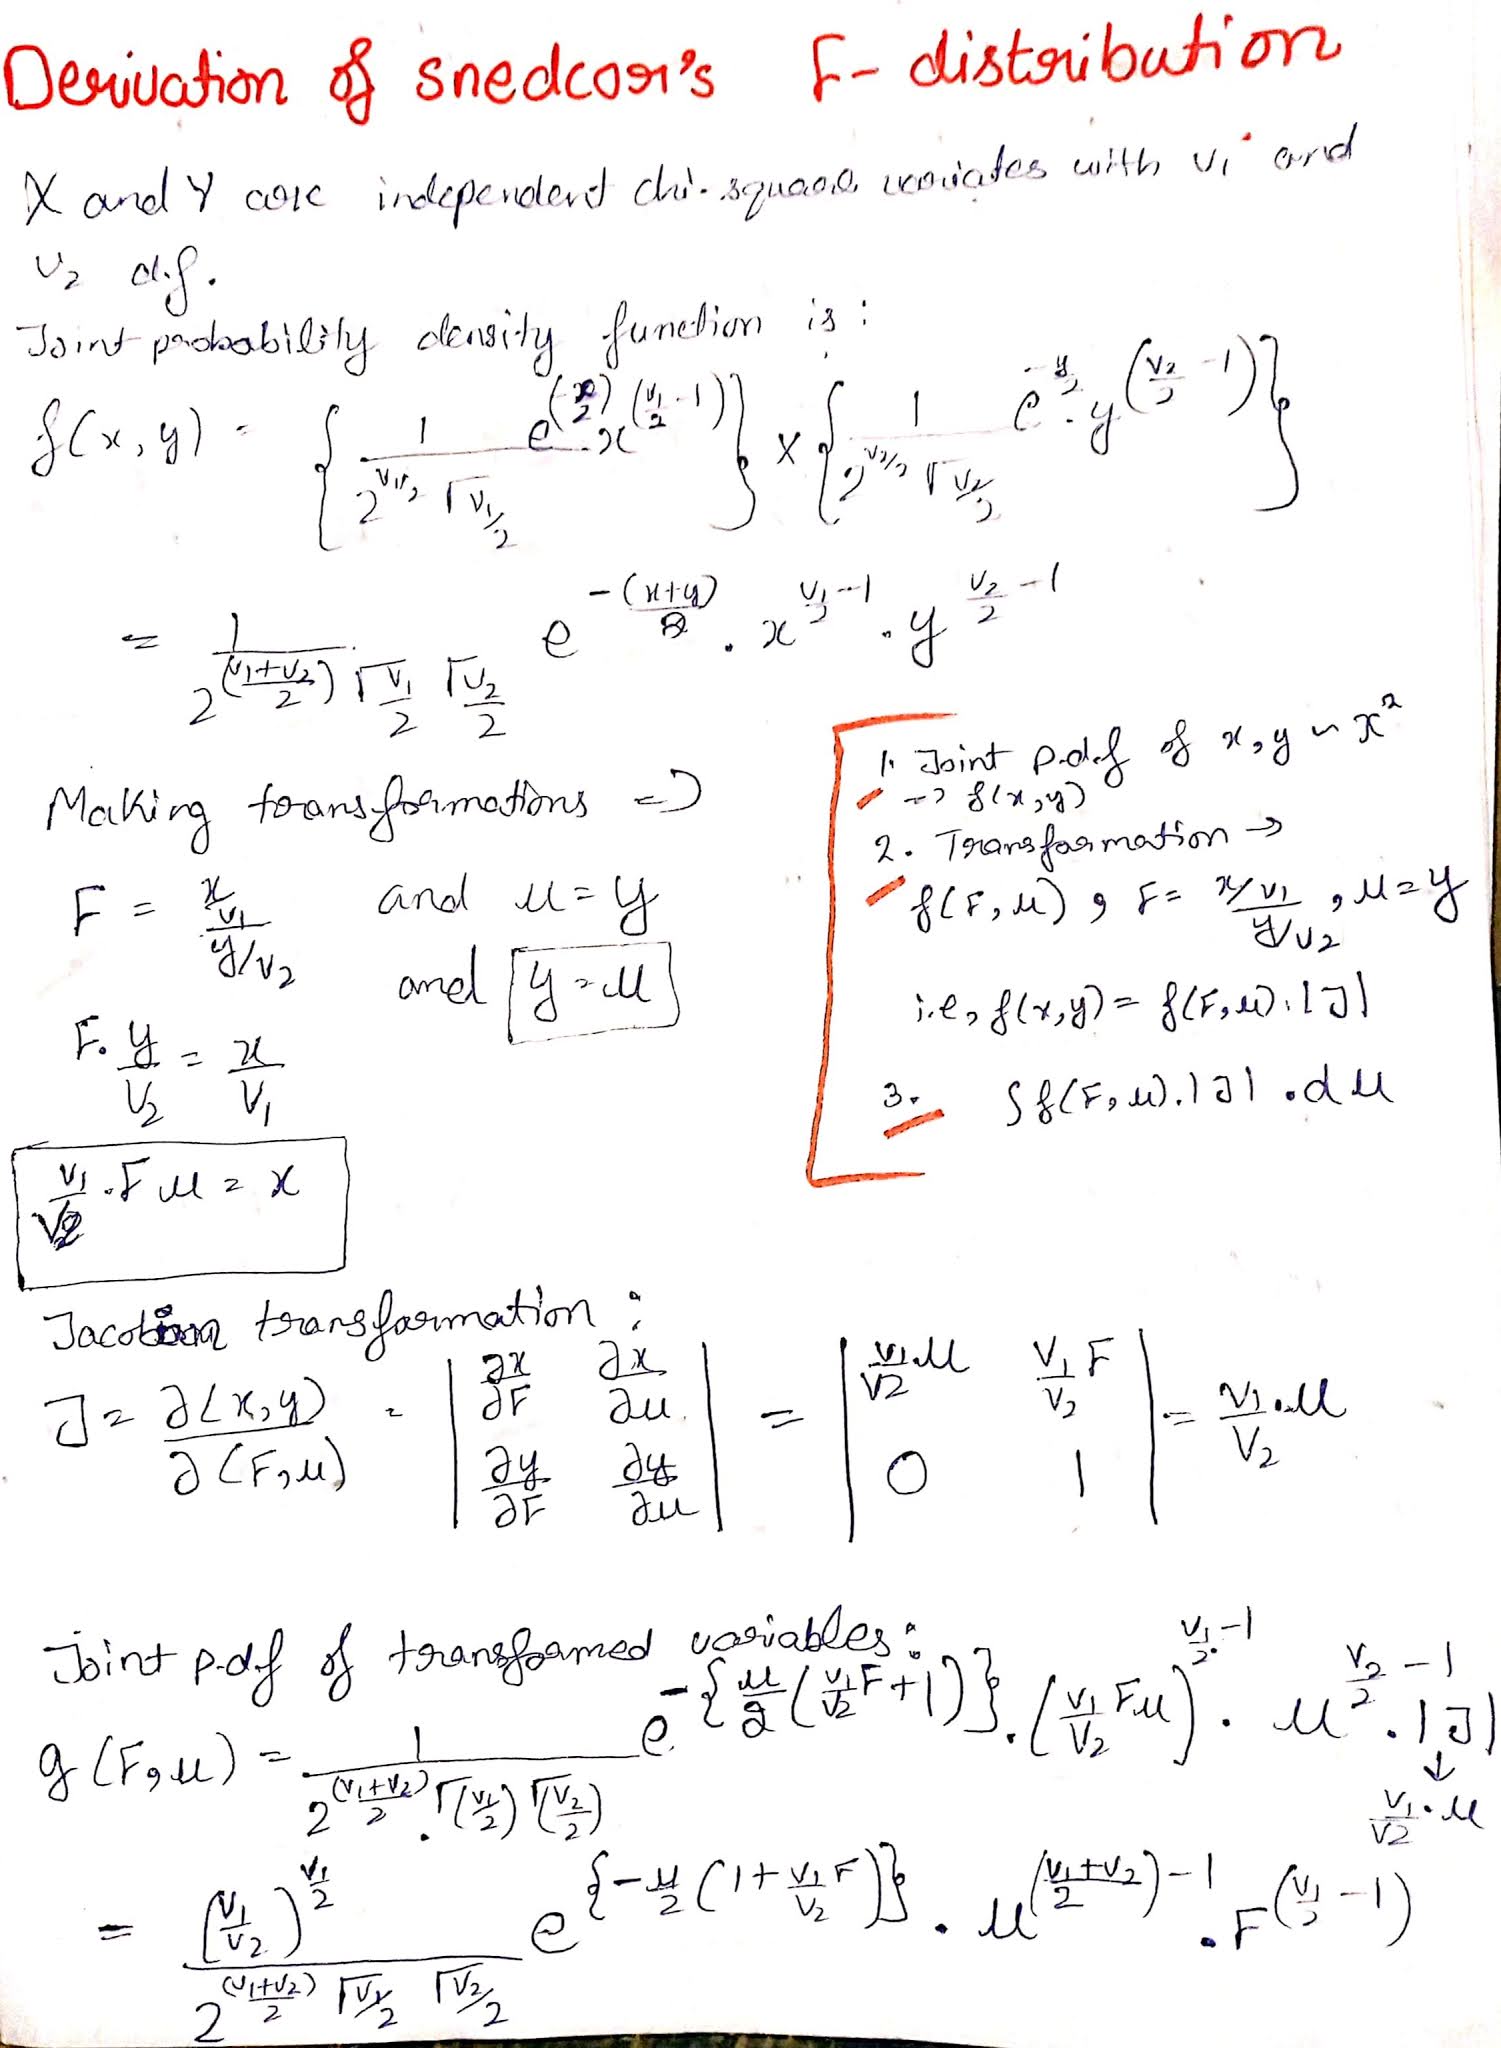 Derivation of snedcor's F- distribution
X and Y are independent chi-square variates with v₁ and
v₂ d.f.
Joint probability density function is:
f(x,y) = { 1/(2^(v₁/2) Γv₁/2) e^(x/2) . x^(v₁/2 -1) } × { 1/(2^(v₂/2) Γv₂/2) e^(-y/2) . y^(v₂/2 -1) }
= 1/(2^((v₁+v₂)/2) Γv₁/2 Γv₂/2) e^(-(x+y)/2) . x^(v₁/2 -1) . y^(v₂/2 -1)
Making transformations =>
F = (x/v₁)/(y/v₂) and u=y
and y=u
F. y/v₂ = x/v₁
v₁/v₂ . F u = x
1. Joint p.d.f of x,y ~ x²
=> f(x,y)
2. Transformation →
f(F,u) , F= (x/v₁)/(y/v₂) , u=y
i.e, f(x,y) = f(F,u).|J|
3. ∫f(F,u).|J| .du
Jacobian transformation:
J = ∂(x,y)/∂(F,u) = | ∂x/∂F ∂x/∂u ; ∂y/∂F ∂y/∂u | = | v₁/v₂ u v₁/v₂ F ; 0 1 | = v₁/v₂ . u
Joint p.d.f of transformed variables:
g(F,u) = 1/(2^((v₁+v₂)/2) . Γ(v₁/2) Γ(v₂/2)) e^(-{u/2 (v₁/v₂ F+1)}) . (v₁/v₂ Fu)^(v₁/2 -1) . u^(v₂/2 -1) . |J|
↓
v₁/v₂ . u
= (v₁/v₂)^(v₁/2)/(2^((v₁+v₂)/2) Γv₁/2 Γv₂/2) e^{-u/2 (1+ v₁/v₂ F)} . u^((v₁+v₂)/2 -1) . F^(v₁/2 -1)